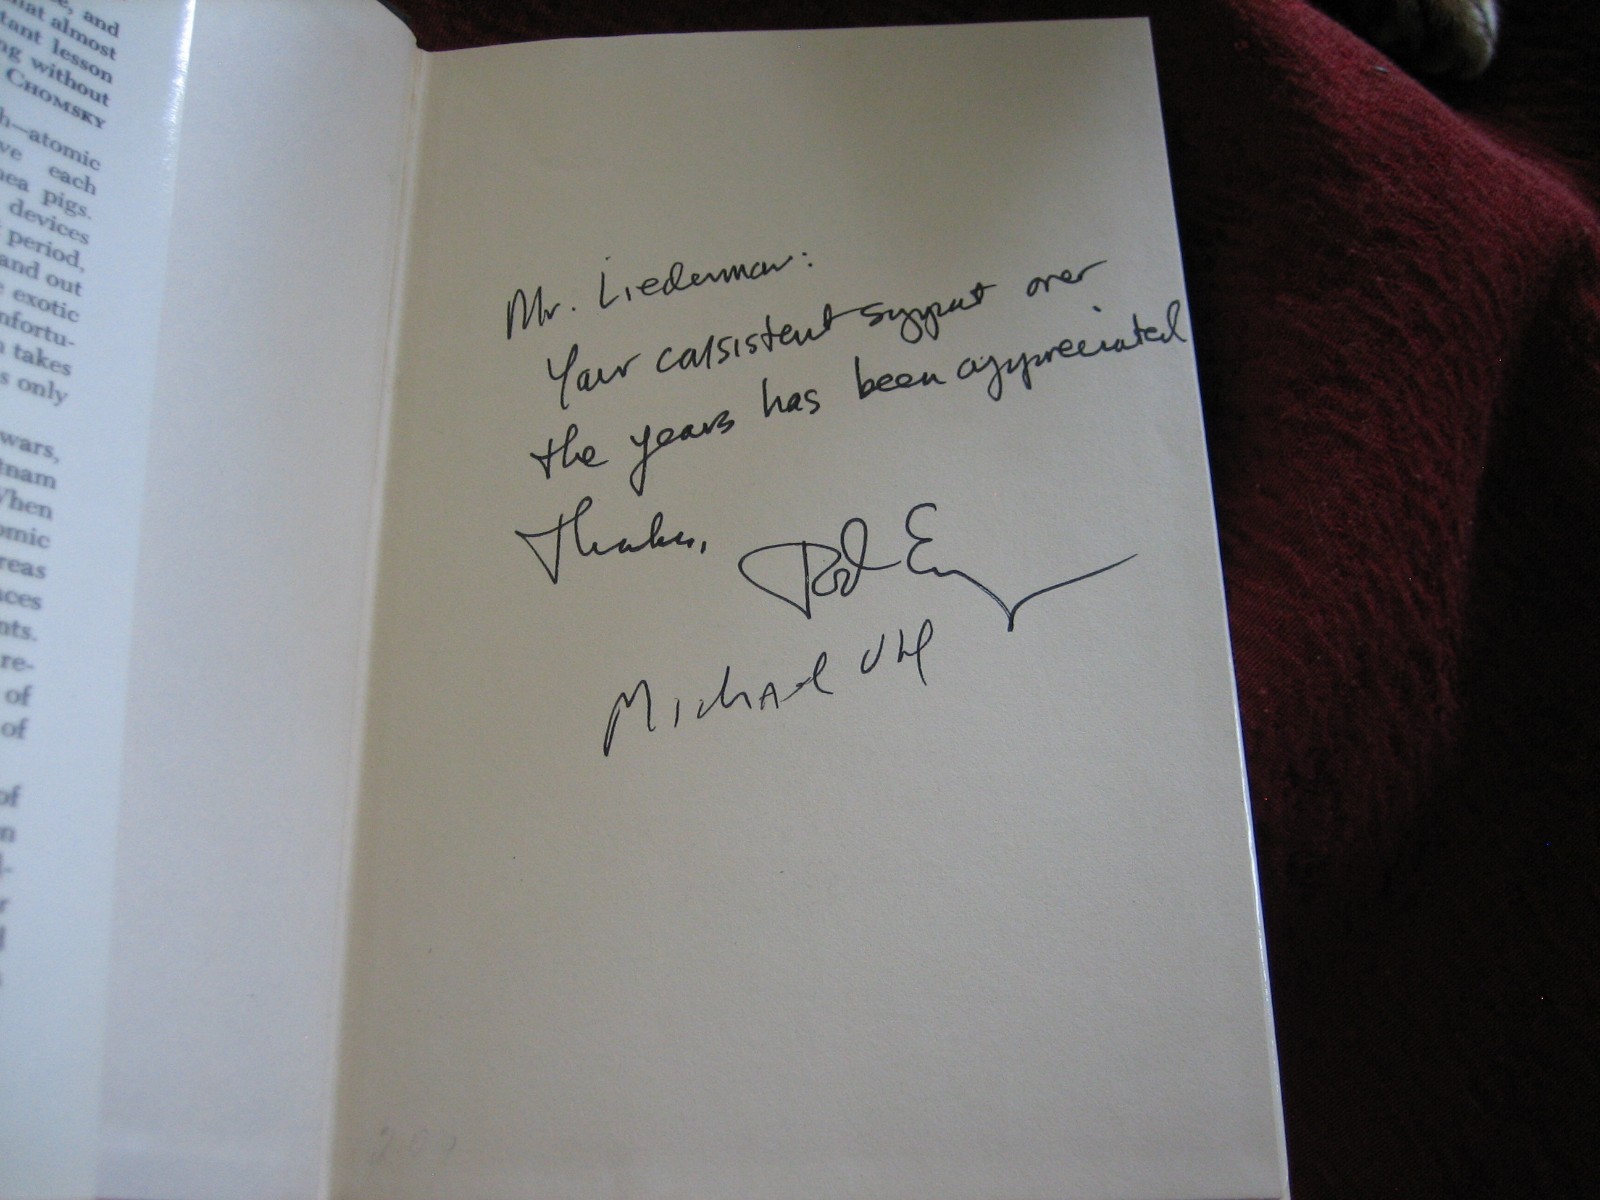 , and
that almost
tant lesson
ng without
CHOMSKY
h—atomic
ve each
nea pigs.
devices
period,
and out
exotic
nfortu-
takes
s only
wars,
tnam
When
omic
reas
nces
nts.
re-
of
of
of
n
Mr. Liederman:
Your consistent support over
the years has been appreciated
Thanks,
Rod En
Michael Uhl